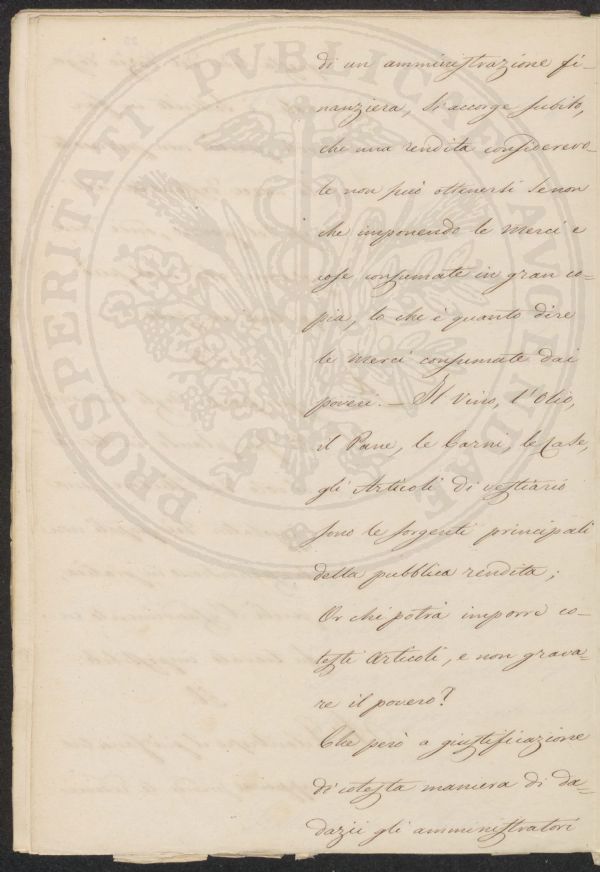 di un amministrazione fi-
nanziera, si accorge subito,
che una rendita considerevo-
le non può ottenersi se non
che imponendo le Merci e
cose consumate in gran co-
pia, lo che è quanto dire
le Merci consumate dai
poveri. — Il Vino, l'Olio,
il Pane, le Carni, le Case,
gli Articoli di vestiario
sono le sorgenti principali
della pubblica rendita;
Or chi potrà imporre co-
testi Articoli, e non grava-
re il povero?
Che però a giustificazione
di cotesta maniera di da-
dazii gli amministratori
PROSPERITATI PVBLICAE AVGENDAE